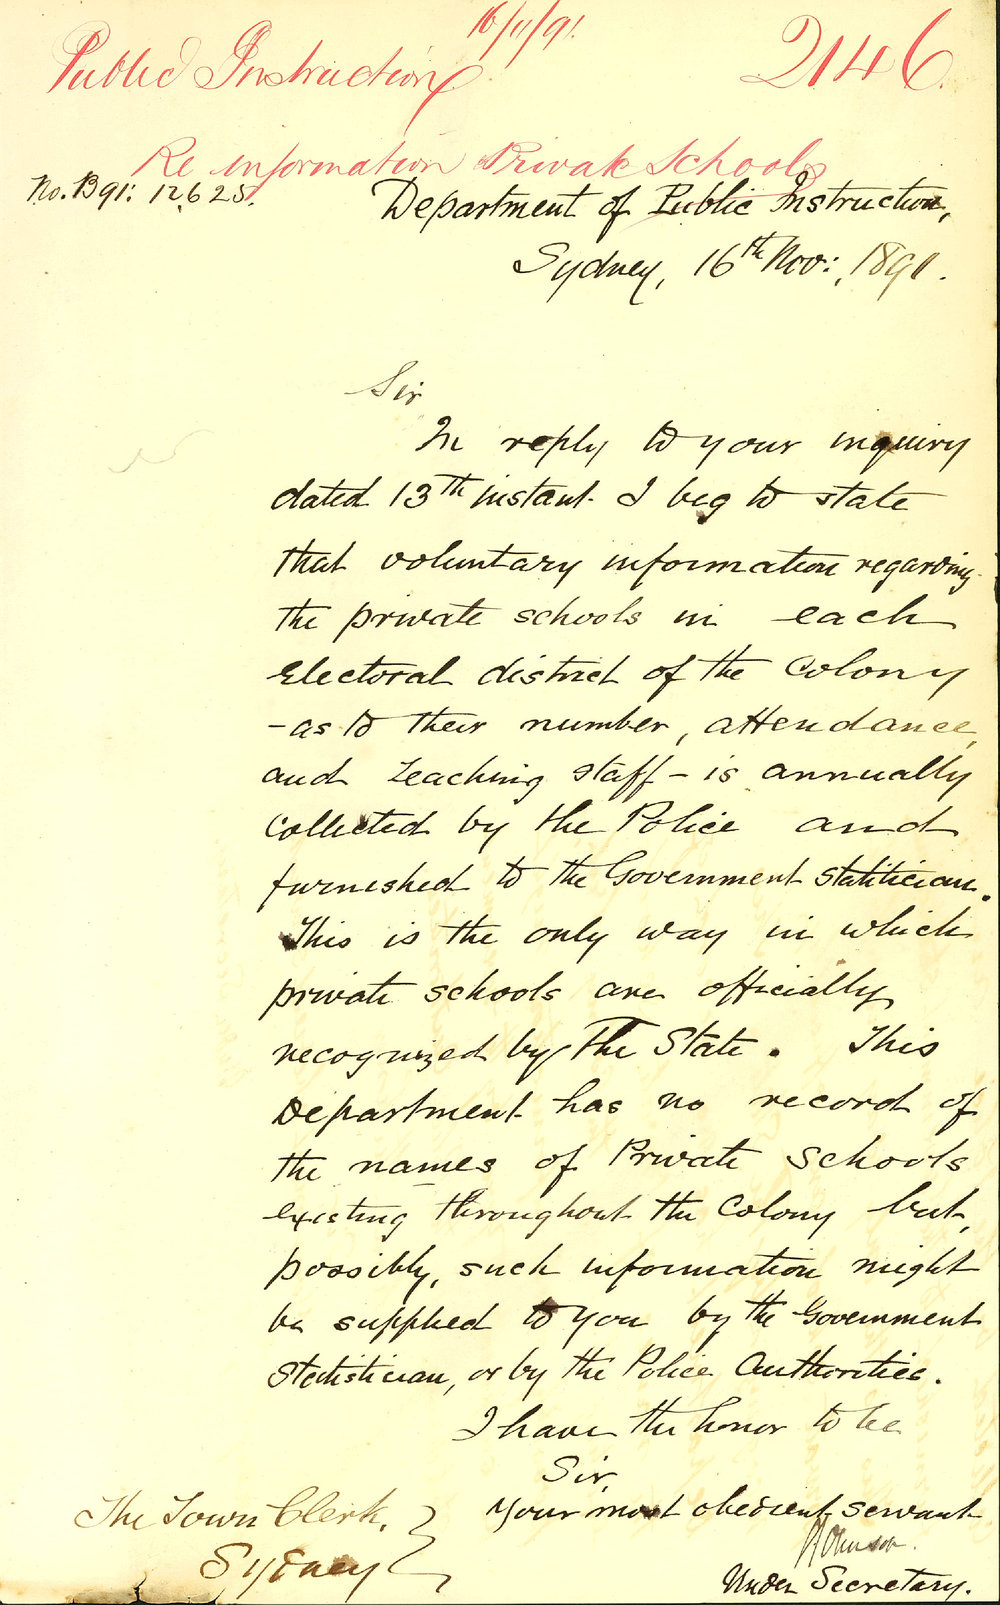 16/11/91.
Public Instruction 2146
Re information Private Schools
No. B91: 12625. Department of Public Instruction,
Sydney, 16th Nov:, 1891.
Sir
In reply to your inquiry
dated 13th instant I beg to state
that voluntary information regarding
the private schools in each
Electoral district of the Colony
- as to their number, attendance,
and teaching staff - is annually
collected by the Police and
furnished to the Government statitician.
This is the only way in which
private schools are officially
recognized by the State. This
Department has no record of
the names of Private Schools
existing throughout the Colony but,
possibly, such information might
be supplied to you by the Government
Statistician, or by the Police Authorities.
I have the honor to be
Sir,
Your most obedient servant
Under Secretary.
The Town Clerk,
Sydney